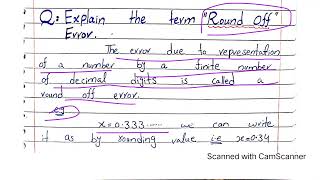 Q: Explain the term "Round Off"
Error.
The error due to representation
of a number by a finite number
of decimal digits is called a
round off error.
eg
x=0.333...... we can write
it as by rounding value i.e x=0.34
Scanned with CamScanner